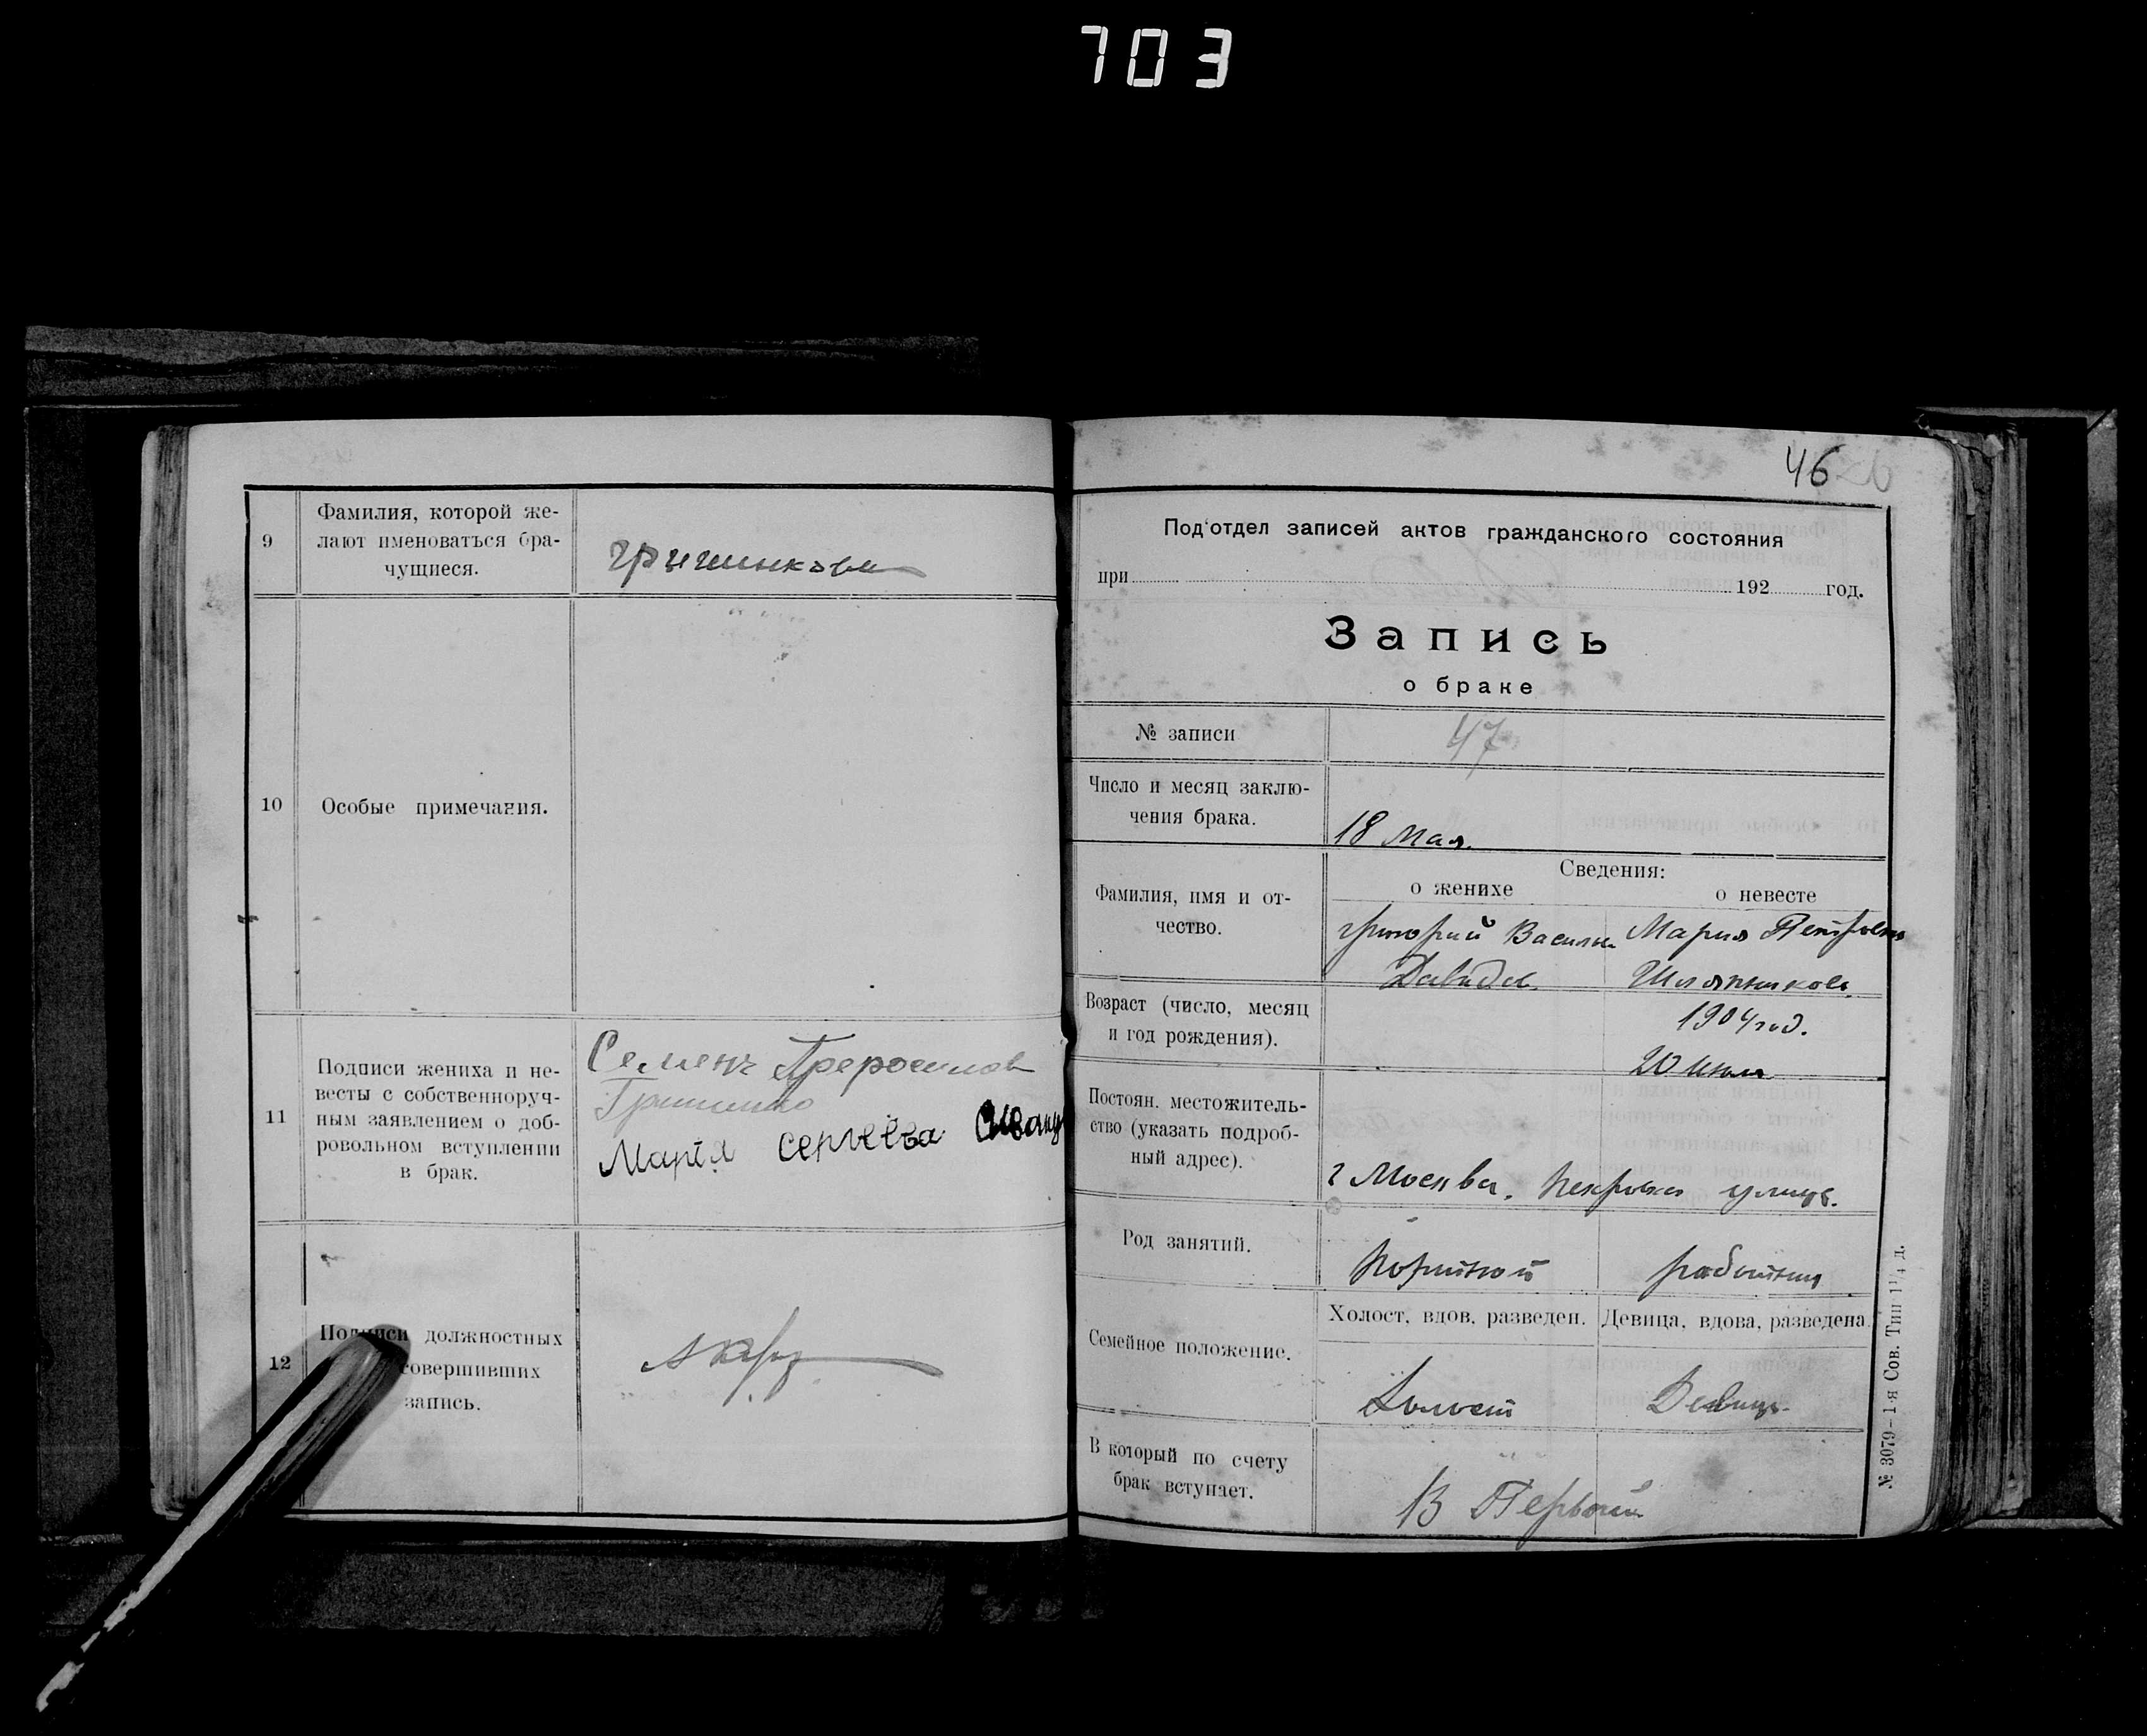 703
9
Фамилия, которой же-
лают именоваться бра-
чущиеся.
10
Особые примечания.
11
Подписи жениха и не-
весты с собственноруч-
ным заявлением о доб-
ровольном вступлении
в брак.
Семенъ
Марія Сергеева
12
Подписи должностных
совершивших
запись.
46
Подотдел записей актов гражданского состояния
при 192 год.
Запись
о браке
№ записи
47
Число и месяц заклю-
чения брака.
18 Мая.
Сведения:
о женихе
о невесте
Фамилия, имя и от-
чество.
Григорий Василь Мария Петровна
Давидов
Возраст (число, месяц
и год рождения).
1904 год.
20
Постоян. местожитель-
ство (указать подроб-
ный адрес).
г Москва. улица.
Род занятий.
Портной
работница
Семейное положение.
Холост, вдов, разведен.
Девица, вдова, разведена.
Холост
Девица
В который по счету
брак вступает.
В Первый
№ 3079-1-я Сов. Тип 1¹/₄ д.